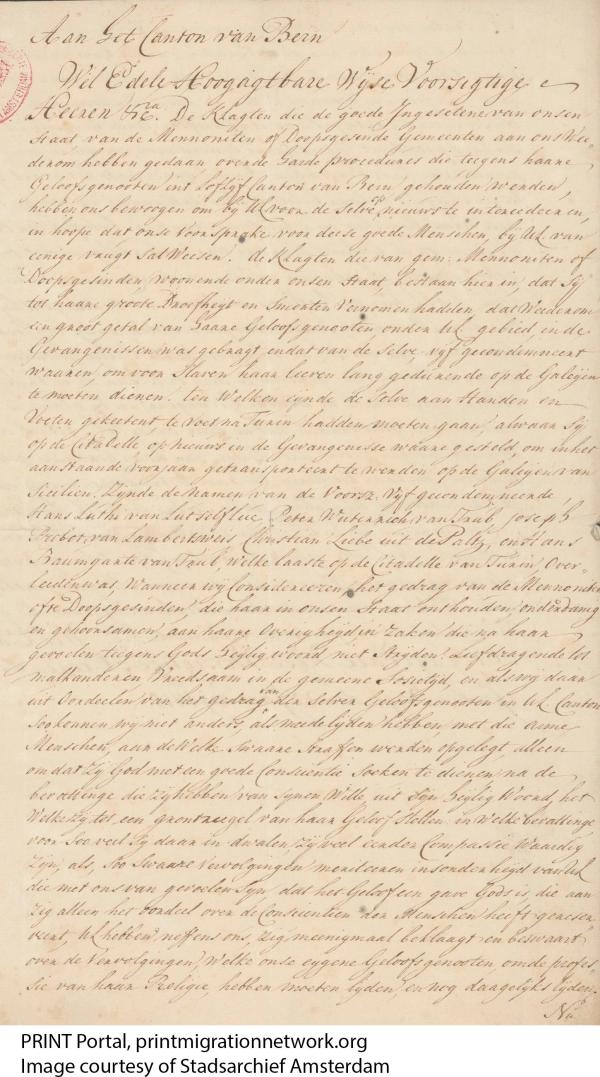 Aan het Canton van Bern
Wel Edele Hoogagtbare Wyse Voorsigtige
Heeren &ra. De Klagten die de goede Ingesetene van onsen
Staat van de Mennoniten of Doopsgesinde Gemeenten aan ons Wee-
derom hebben gedaan over de harde proceduires die teegens haare
Geloofsgenooten int Loflyf Canton van Bern gehouden werden,
hebben ons bewoogen om by UL voor de selve op nieuws te intercedeeren,
in hoope dat onse Voorsprake voor deese goede Menschen, by UL van
eenige vrugt sal Weesen. de Klagten die van gem: Mennoniten of
Doopsgesinden, woonende onder onsen Staat, bestaan hier in, dat Sy
tot haare groote Droefheyt en Smerten Vernomen hadden, dat Weederom
een groot getal van haare Geloofsgenooten onder UL gebied, in de
Gevangenissen was gebragt en dat van de selve, vyf gecondemneert
waaren, om voor Slaven haar leeven lang gedurende op de Galeyen
te moeten dienen. ten Welken eynde de Selve aan Handen en
Voeten geketent te voet na Turin hadden moeten gaan, alwaar Sy
op de Citadelle, op nieuws in de Gevangenisse waare gesteld, om in het
aanstaande voorjaar getransporteert te werden op de Galeyen van
Sicilien. Zynde de namen van de Voorsz. Vyf gecondemneerde,
Hans Luthi van Lutselflue Peter Weutennich van Trub, Joseph
Probot, van Lambertsweis Christian Liebe uit de Paltz, en Hans
Baumgarte van Trub, welke laaste op de Citadelle van Turin, Over-
leeden was, Wanneer wy Considereeren, het gedrag van de Mennoniten
ofte Doopsgesinden, die haar in onsen Staat onthouden, onderdanig
en gehoorsamen, aan haare Overigheyd in Zaken die na haar
gevoelen tegens Gods Heylig woord niet Stryden. Liefdragende tot
malkanderen Vreedsaam in de gemeene Sosieteyd, en als wy daar
uit Oordeelen van het gedrag van der Selver Geloofsgenooten in UL Canton
Soo kunnen wy niet anders, als meede lyden hebben, met die arme
Menschen, aan de Welke Swaare Straffen werden opgelegt, alleen
om dat Zy God met een goede Conscientie Soeken te dienen, na de
bevattinge die Zy hebben van Synen Wille, uit Syn Heylig Woord, het
Welke Zy, tot een grontreegel van haar Geloof Stellen in Welke bevattinge
voor Soo veel Sy daar in dwalen, Zy veel eerder Compassie Waardig
Zyn, als, Soo Swaare Vervolgingen meriteeren insonderheyd van UL
die met ons van gevoelen Syn dat het Geloof een gave Gods is, die aan
Zig alleen het oordeel over de Conscientien der Menschen heeft gereser
veert, UL hebben neffens ons, Zig meenigmaal beklaagt en beswaart
over de Vervolgingen, Welke onse eygene Geloofsgenooten, om de profes-
sie van haar Religie, hebben moeten lyden, en nog daagelyks lyden.
Nu
PRINT Portal, printmigrationnetwork.org
Image courtesy of Stadsarchief Amsterdam